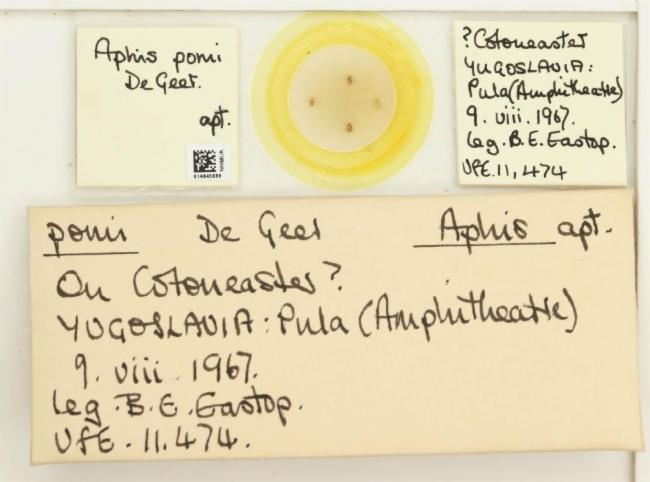 Aphis pomi
De Geer.
apt.
NHMUK
014845089
?Cotoneaster
YUGOSLAVIA:
Pula (Amphitheatre)
9. viii. 1967.
leg. B.E. Eastop.
VFE. 11,474
pomi De Geer Aphis apt.
On Cotoneaster?
YUGOSLAVIA: Pula (Amphitheatre)
9. viii. 1967.
leg. B.E. Eastop.
VFE. 11.474.